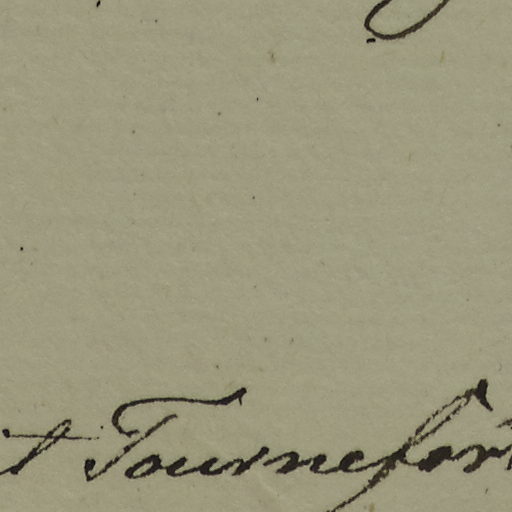 t Tournefor